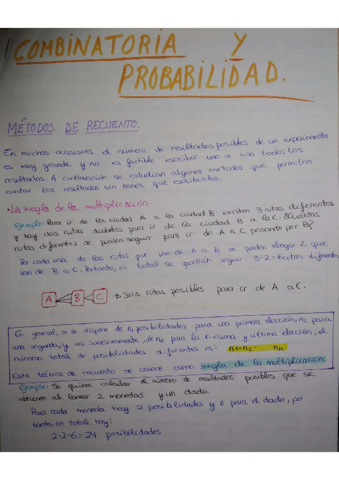 COMBINATORIA Y
PROBABILIDAD.
MÉTODOS DE RECUENTO.
En muchas ocasiones el número de resultados posibles de un experimento
es muy grande y no es factible escribir uno a uno todos los
resultados. A continuación se estudian algunos métodos que permiten
contar los resultados sin tener que escribirlos.
• La Regla de la multiplicación.
Ejemplo: Para ir de la ciudad A a la ciudad B existen 3 rutas diferentes
y hay dos rutas distintas para ir de la ciudad B a la C. ¿Cuántas
rutas diferentes se pueden seguir para ir de A a C pasando por B?
Por cada una de las rutas que van de A a B se pueden elegir 2 que
van de B a C. Por tanto, en total se podrán seguir 3·2=6 rutas diferentes
A B C → Seis rutas posibles para ir de A a C.
En general, si se dispone de n₁ posibilidades para una primera elección, n₂ para
una segunda, y así sucesivamente, de nₖ para la k-esima y última elección, el
número total de posibilidades diferentes es: n₁·n₂· nₖ
Esta técnica de recuento se conoce como regla de la multiplicación
Ejemplo: Se quiere calcular el número de resultados posibles que se
obtienen al lanzar 2 monedas y un dado.
Para cada moneda hay 2 posibilidades y 6 para el dado, por
tanto, en total hay:
2·2·6=24 posibilidades